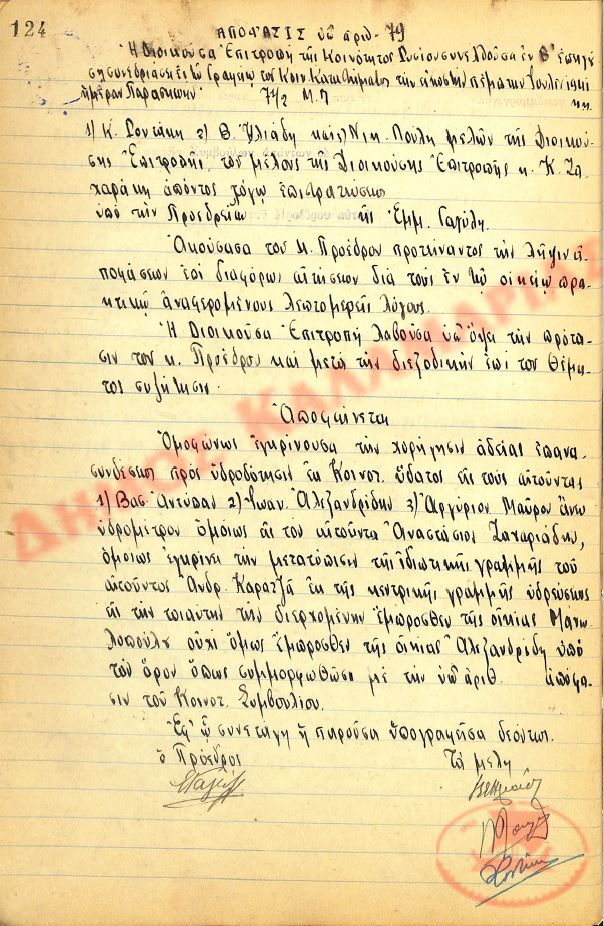 124
ΑΠΟΦΑΣΙΣ ὑπ' ἀριθ- 79
Ἡ Διοικοῦσα Ἐπιτροπή τῆς Κοινότητος συνελθοῦσα ἐν
συνεδριάσει ἐν τῷ Γραφείῳ τοῦ Κοιν. Καταστήματος τήν εἰκοστήν πέμπτην Ἰουλίου 1941
ἡμέραν Παρασκευήν 7½ Μ.Π
1) Κ. Ροντάκη 2) Θ. Ἠλιάδη καί 3) Νικ. Πούλη μελῶν τῆς Διοικού-
σης Ἐπιτροπῆς, τοῦ μέλους τῆς Διοικούσης Ἐπιτροπῆς κ. Κ. Ζα-
χαράκη ἀπόντος λόγῳ ἐπιστρατεύσεως
ὑπό τήν Προεδρείαν τῆς Ἐμμ. Γαγύλη.
Ἀκούσασα τοῦ κ. Προέδρου προτείναντος τήν λῆψιν ἀ-
ποφάσεων ἐπί διαφόρων αἰτήσεων διά τούς ἐν τῷ οἰκείῳ πρα-
κτικῷ ἀναφερομένους λεπτομερεῖς λόγους.
Ἡ Διοικοῦσα Ἐπιτροπή λαβοῦσα ὑπ' ὄψει τήν πρότα-
σιν τοῦ κ. Προέδρου καί μετά τήν διεξοδικήν ἐπί τοῦ θέμα-
τος συζήτησιν
Ἀποφαίνεται
Ὁμοφώνως ἐγκρίνουσα τήν χορήγησιν ἀδείας ἐπανα-
συνδέσεως πρός ὑδροδότησιν ἐκ Κοινοτ. ὕδατος εἰς τούς αἰτοῦντας
1) Βασ. Ἀντύπαν 2) Ἰωαν. Ἀλεξανδρίδην 3) Ἀργύριον Μαῦρον ἄνευ
ὑδρομέτρου ὁμοίως εἰς τόν αἰτοῦντα Ἀναστάσιος Ζαχαριάδην,
ὁμοίως ἐγκρίνει τήν μετατόπισιν τῆς ἰδιωτικῆς γραμμῆς τοῦ
αἰτοῦντος Ἀνδρ. Καρατζᾶ ἐκ τῆς κεντρικῆς γραμμῆς ὑδρεύσεως
εἰς τήν τοιαύτην τήν διερχομένην ἔμπροσθεν τῆς οἰκίας Μανω-
λοπούλου οὐχί ὅμως ἔμπροσθεν τῆς οἰκίας Ἀλεξανδρίδη ὑπό
τόν ὅρον ὅπως συμμορφωθῶσι μέ τήν ὑπ' ἀριθ. ἀπόφα-
σιν τοῦ Κοινοτ. Συμβουλίου.
Ἐφ' ᾧ συνετάγη ἡ παροῦσα ὑπογραφεῖσα δεόντως.
ὁ Πρόεδρος Τά μέλη
ΔΗΜΟΣ ΚΑΛΑΜΑΡΙΑΣ